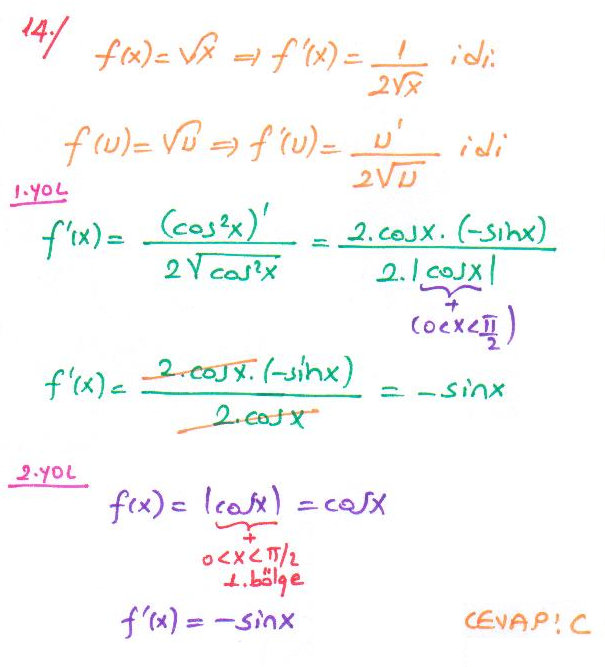 14./
f(x) = √x ⇒ f'(x) = 1/(2√x) idi.
f(u) = √u ⇒ f'(u) = u'/(2√u) idi
1.YOL
f'(x) = (cos²x)'/(2√cos²x) = 2.cosx.(-sinx)/(2.|cosx|)
+
(0<x<π/2)
f'(x) = 2.cosx.(-sinx)/(2.cosx) = -sinx
2.YOL
f(x) = |cosx| = cosx
+
0<x<π/2
1.bölge
f'(x) = -sinx
CEVAP: C